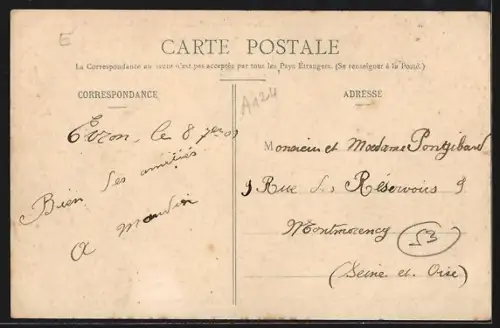 E
CARTE POSTALE
La Correspondance au recto n'est pas acceptée par tous les Pays Étrangers. (Se renseigner à la Poste).
CORRESPONDANCE
A124
ADRESSE
Evron, le 8
Bien des amitiés
A Maudin
Monsieur et Madame Pontgibaud
9 Rue des Réservoirs 9
Montmorency
53
(Seine et Oise)